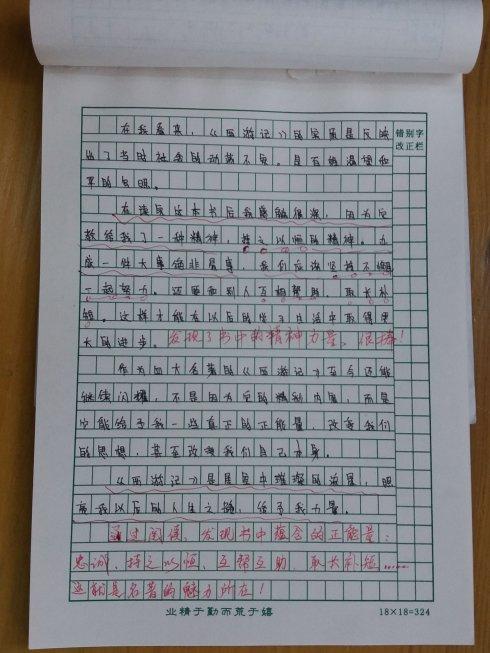 在我看来，《西游记》的实质是反映
出了当时社会的动荡不安。是百姓渴望和
平的写照。
在读完这本书后我感触很深，因为它
教给我了一种精神，持之以恒的精神。办
成一件大事绝非易事，我们应该坚持不懈
一起努力。还要和别人互相帮助，取长补
短。这样才能在以后的学习生活中取得更
大的进步。发现了书中的精神力量，很棒！
作为四大名著的《西游记》至今还能
继续闪耀，不是因为它的精彩内容，而是
它能给予我一些真正的正能量，改变我们
的思想，甚至改变我们自己本身。
《西游记》是星空中璀璨的流星，照
亮我以后的人生之路，给予我力量。
通过阅读，发现书中蕴含的正能量：
忠诚、持之以恒、互帮互助、取长补短……
这就是名著的魅力所在！
错别字
改正栏
业精于勤而荒于嬉
18×18=324